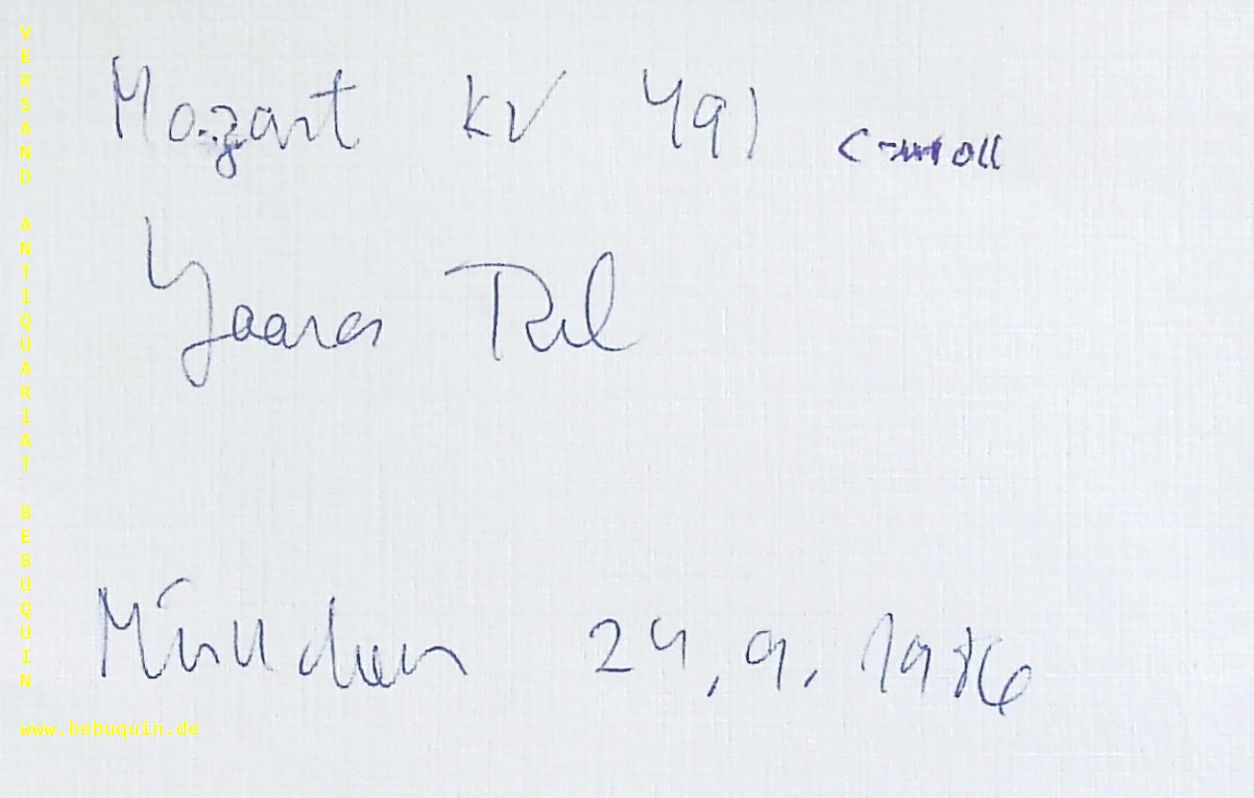 Mozart KV 491 c-moll
Yaara Tal
München 24.9.1986
VERSAND ANTIQUARIAT BEBUQUIN
www.bebuquin.de